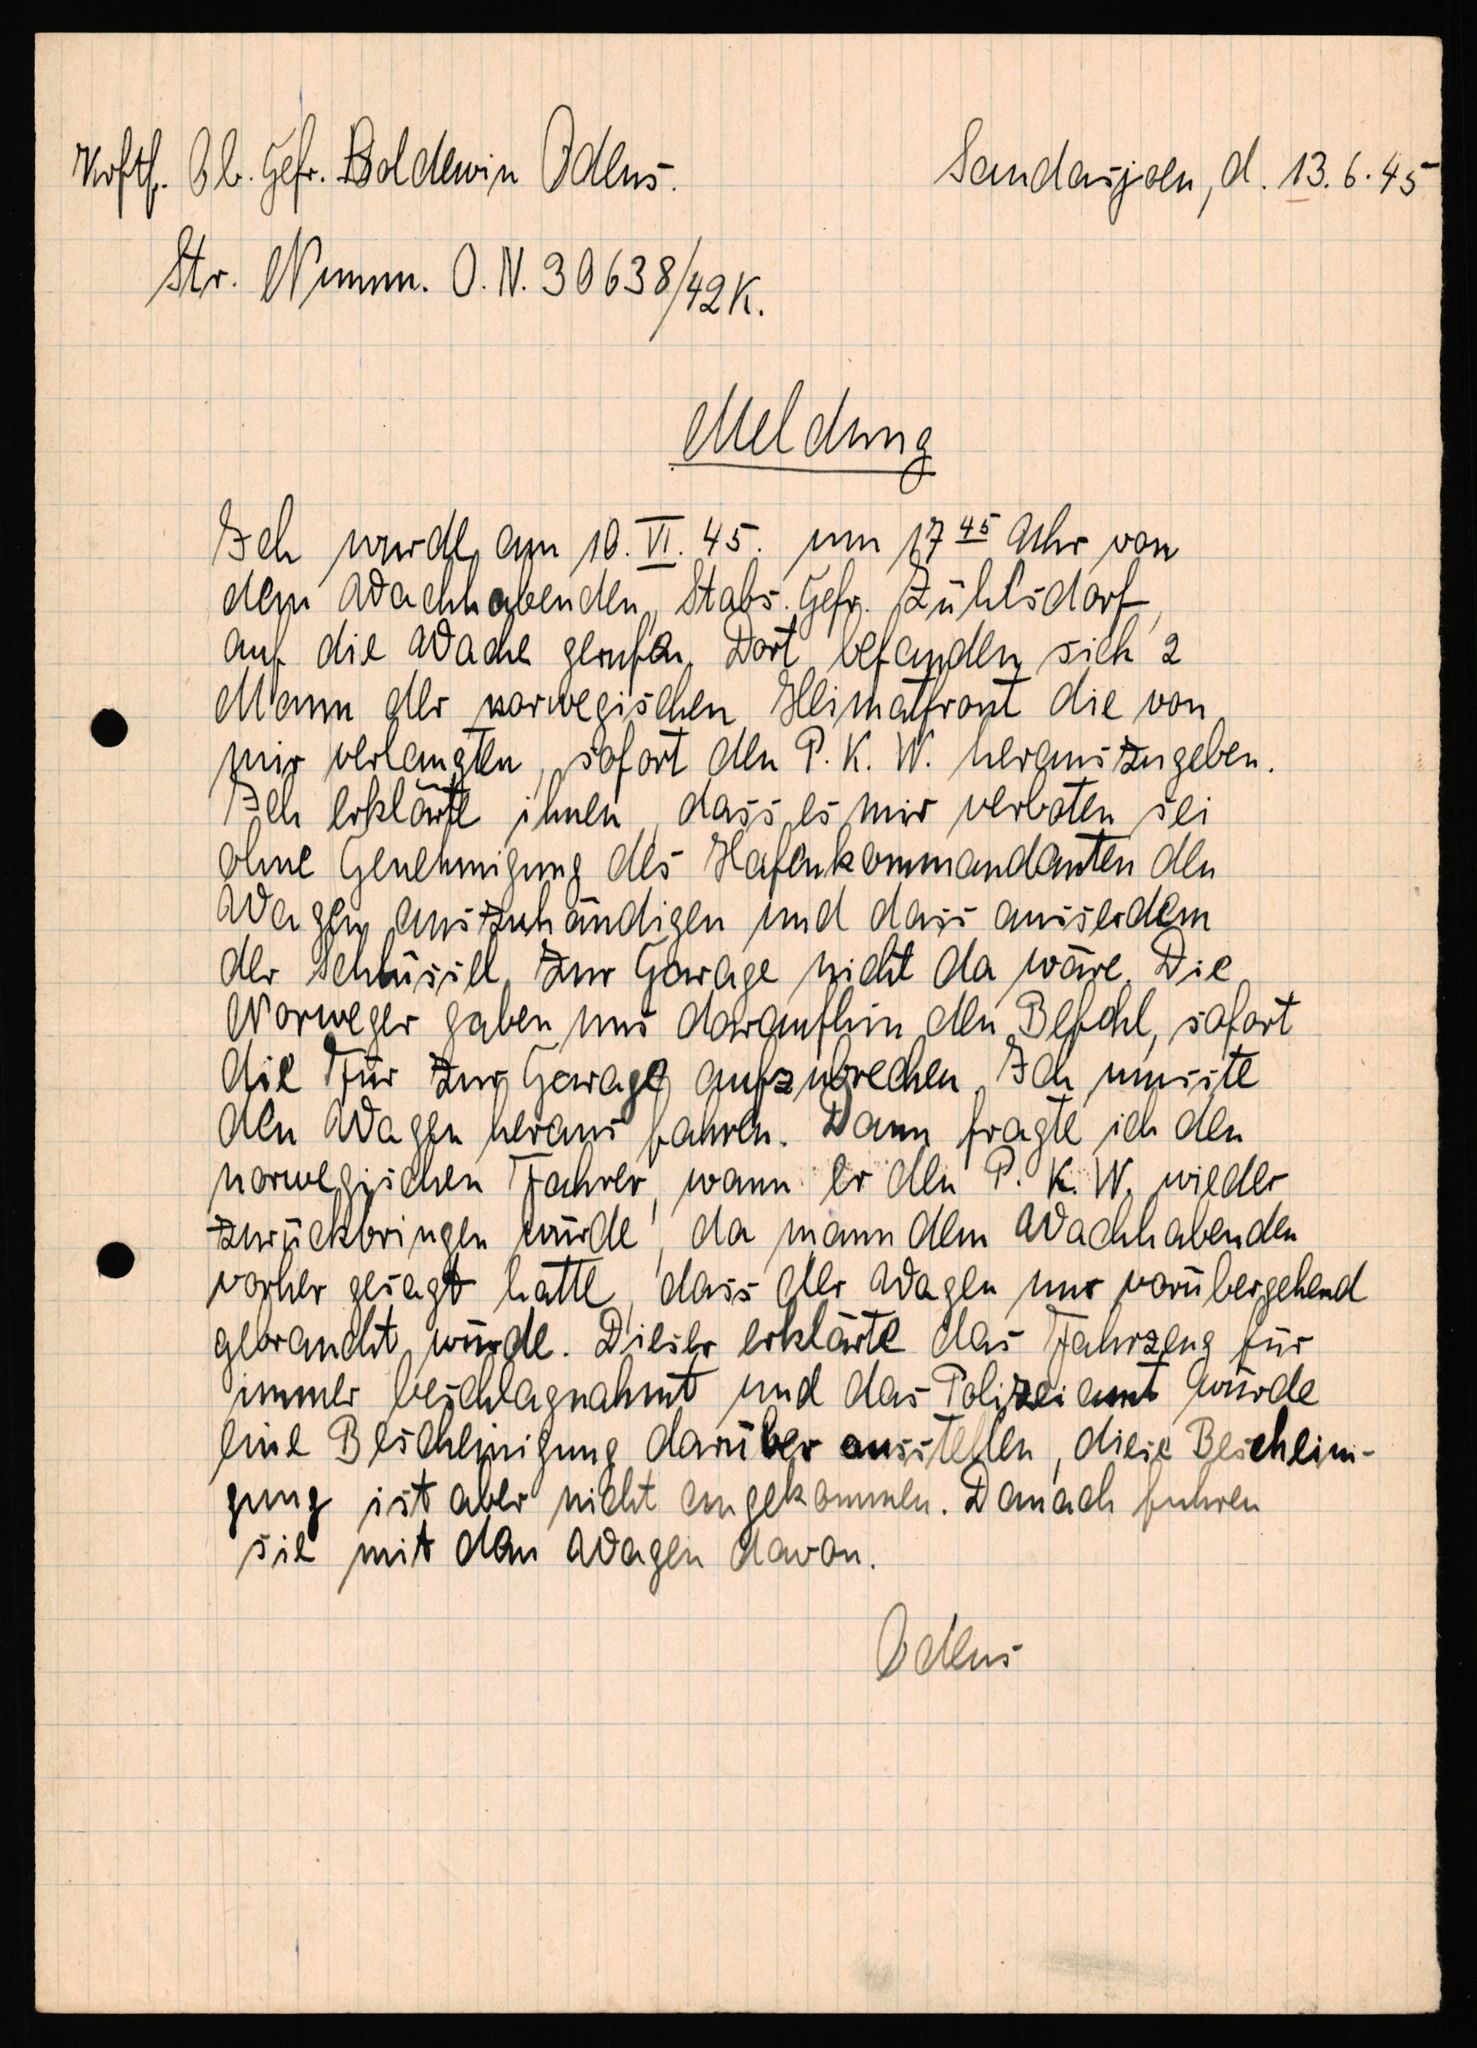 Krftf. Ob. Gefr. Boldewin Odens. Sandasjoen, d. 13.6.45
Str. Numm. O.N. 30638/42K.
Meldung
Ich wurde am 10. VI. 45. um 17 45 Uhr von
dem Wachhabenden, Stabs. Gefr. Zühlsdorf,
auf die Wache gerufen. Dort befanden sich 2
Mann der norwegischen Heimatfront die von
mir verlangten, sofort den P. K. W. herauszugeben.
Ich erklärte ihnen, dass es mir verboten sei
ohne Genehmigung des Hafenkommandanten den
Wagen auszuhändigen und dass ausserdem
der Schlüssel zur Garage nicht da wäre. Die
Norweger gaben uns daraufhin den Befehl, sofort
die Tür zur Garage aufzubrechen. Ich musste
den Wagen heraus fahren. Dann fragte ich den
norwegischen Fahrer, wann er den P. K. W. wieder
zurückbringen würde, da mann dem Wachhabenden
vorher gesagt hatte, dass der Wagen nur vorübergehend
gebraucht würde. Dieser erklärte das Fahrzeug für
immer beschlagnahmt und das Polizeiamt würde
eine Bescheinigung darüber ausstellen, diese Beschein-
gung ist aber nicht angekommen. Danach fuhren
sie mit dem Wagen davon.
Odens